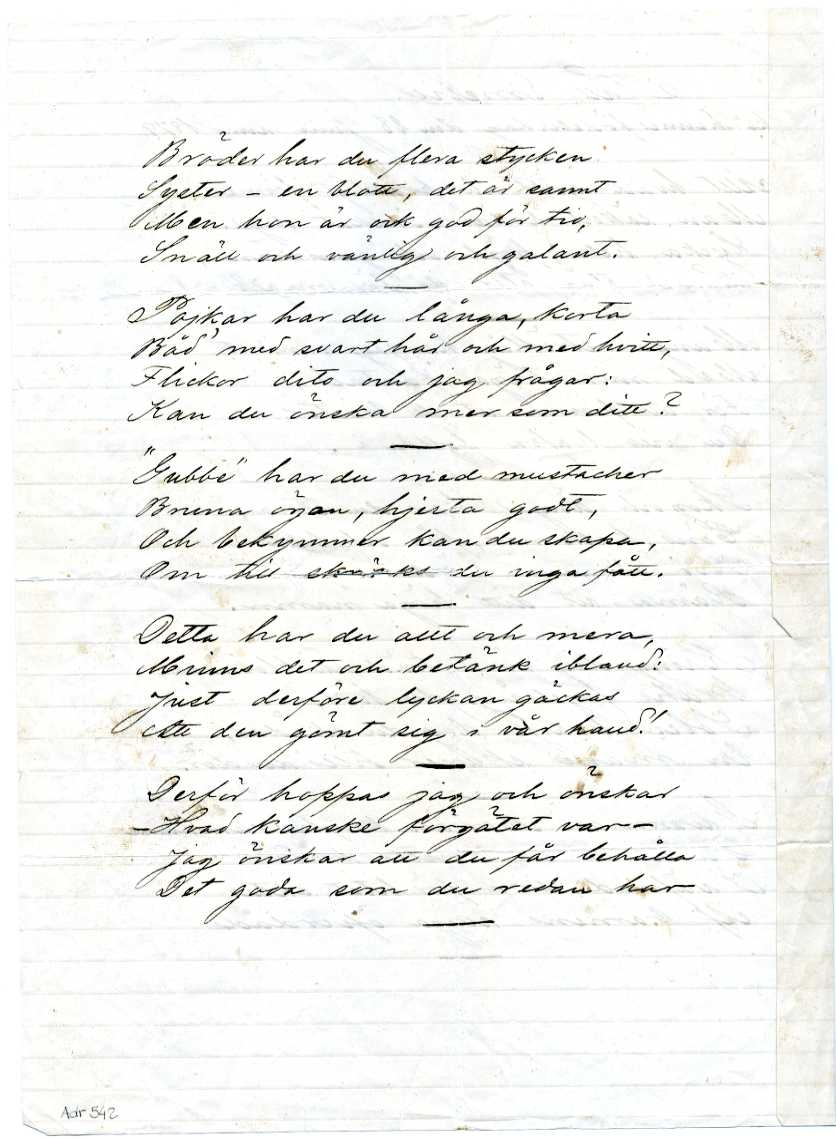 Bröder har du flera stycken
Syster – en blott, det är sannt
Men hon är ock god för tio,
Snäll och vänlig och galant.
Pojkar har du långa, korta
Båd' med svart hår och med hvitt,
Flickor dito och jag frågar:
Kan du önska mer som ditt?
"Gubbe" har du med mustacher
Bruna ögon, hjerta godt,
Och bekymmer kan du skapa,
Om till skänks du inga fått.
Detta har du allt och mera,
Minns det och betänk ibland:
Just derföre lyckan gäckas
Att den gömt sig i vår hand!
Derför hoppas jag och önskar
– Hvad kanske förgätet var –
Jag önskar att du får behålla
Det goda som du redan har
Adr 542